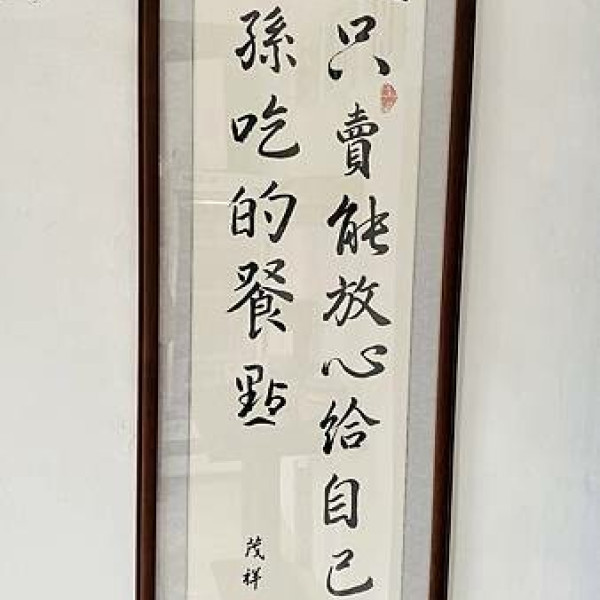 只賣能放心給自己
孫吃的餐點
茂祥